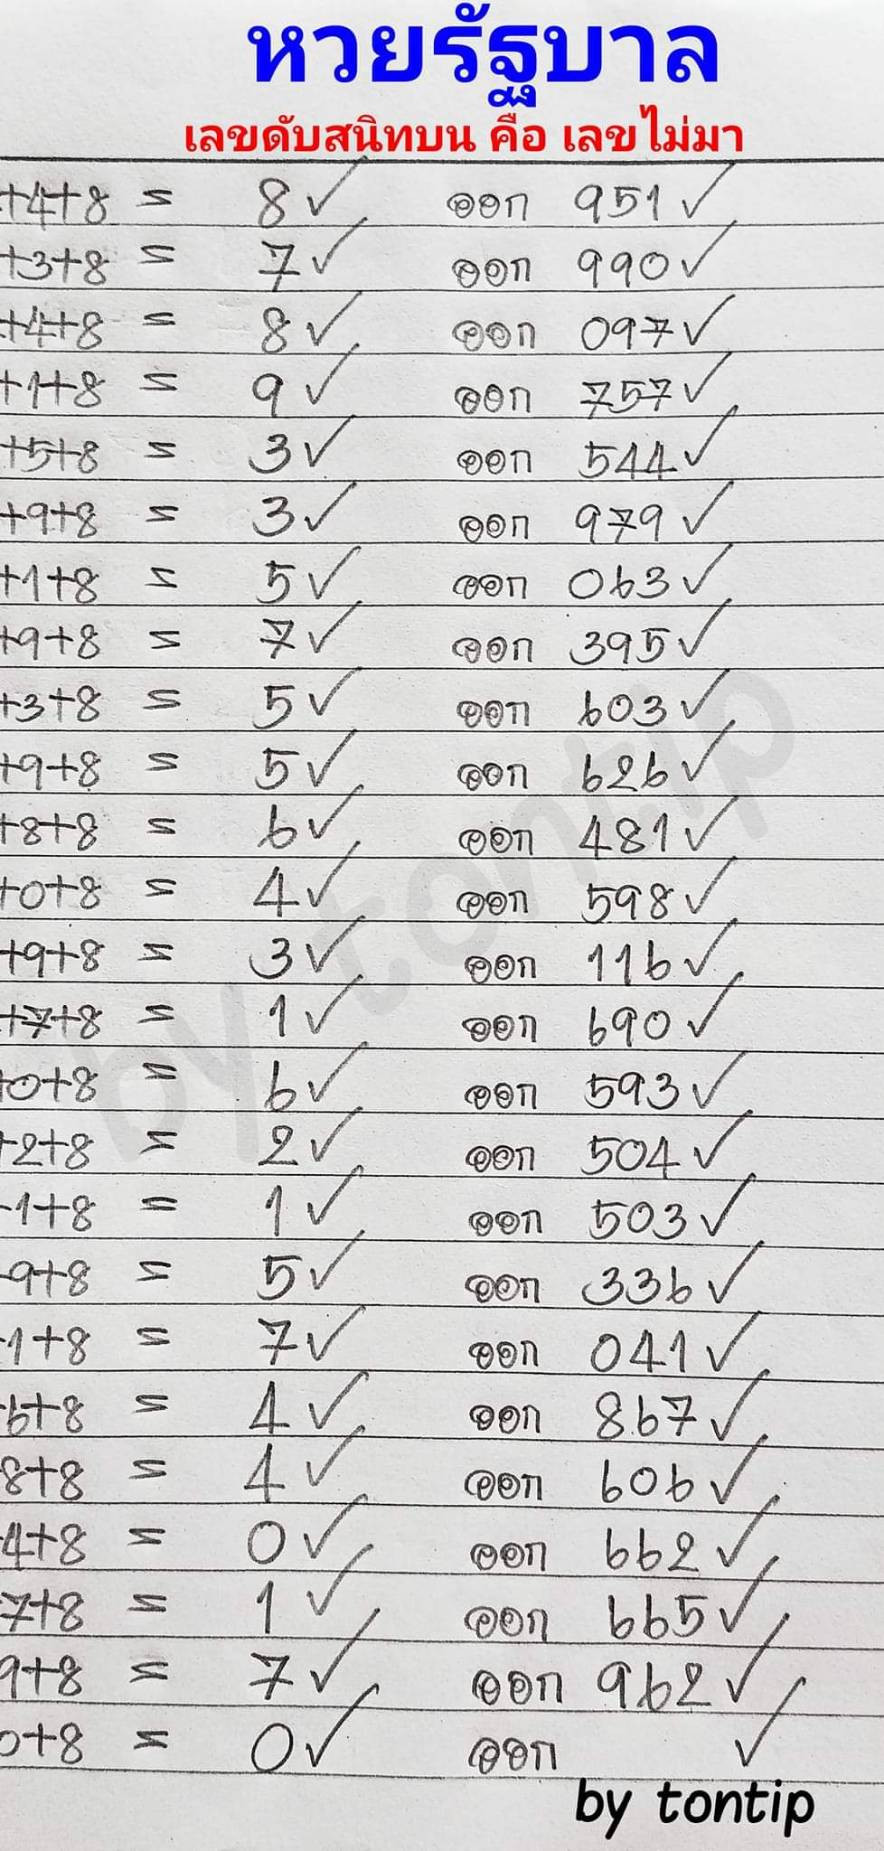 หวยรัฐบาล
เลขดับสนิทบน คือ เลขไม่มา
+4+8 = 8✓ ออก 951✓
+3+8 = 7✓ ออก 990✓
+4+8 = 8✓ ออก 097✓
+1+8 = 9✓ ออก 757✓
+5+8 = 3✓ ออก 544✓
+9+8 = 3✓ ออก 979✓
+1+8 = 5✓ ออก 063✓
+9+8 = 7✓ ออก 395✓
+3+8 = 5✓ ออก 603✓
+9+8 = 5✓ ออก 626✓
+8+8 = 6✓ ออก 481✓
+0+8 = 4✓ ออก 598✓
+9+8 = 3✓ ออก 116✓
+7+8 = 1✓ ออก 690✓
+0+8 = 6✓ ออก 593✓
+2+8 = 2✓ ออก 504✓
-1+8 = 1✓ ออก 503✓
-9+8 = 5✓ ออก 336✓
-1+8 = 7✓ ออก 041✓
-6+8 = 4✓ ออก 867✓
8+8 = 4✓ ออก 606✓
4+8 = 0✓ ออก 662✓
7+8 = 1✓ ออก 665✓
9+8 = 7✓ ออก 962✓
0+8 = 0✓ ออก ✓
by tontip
by tontip